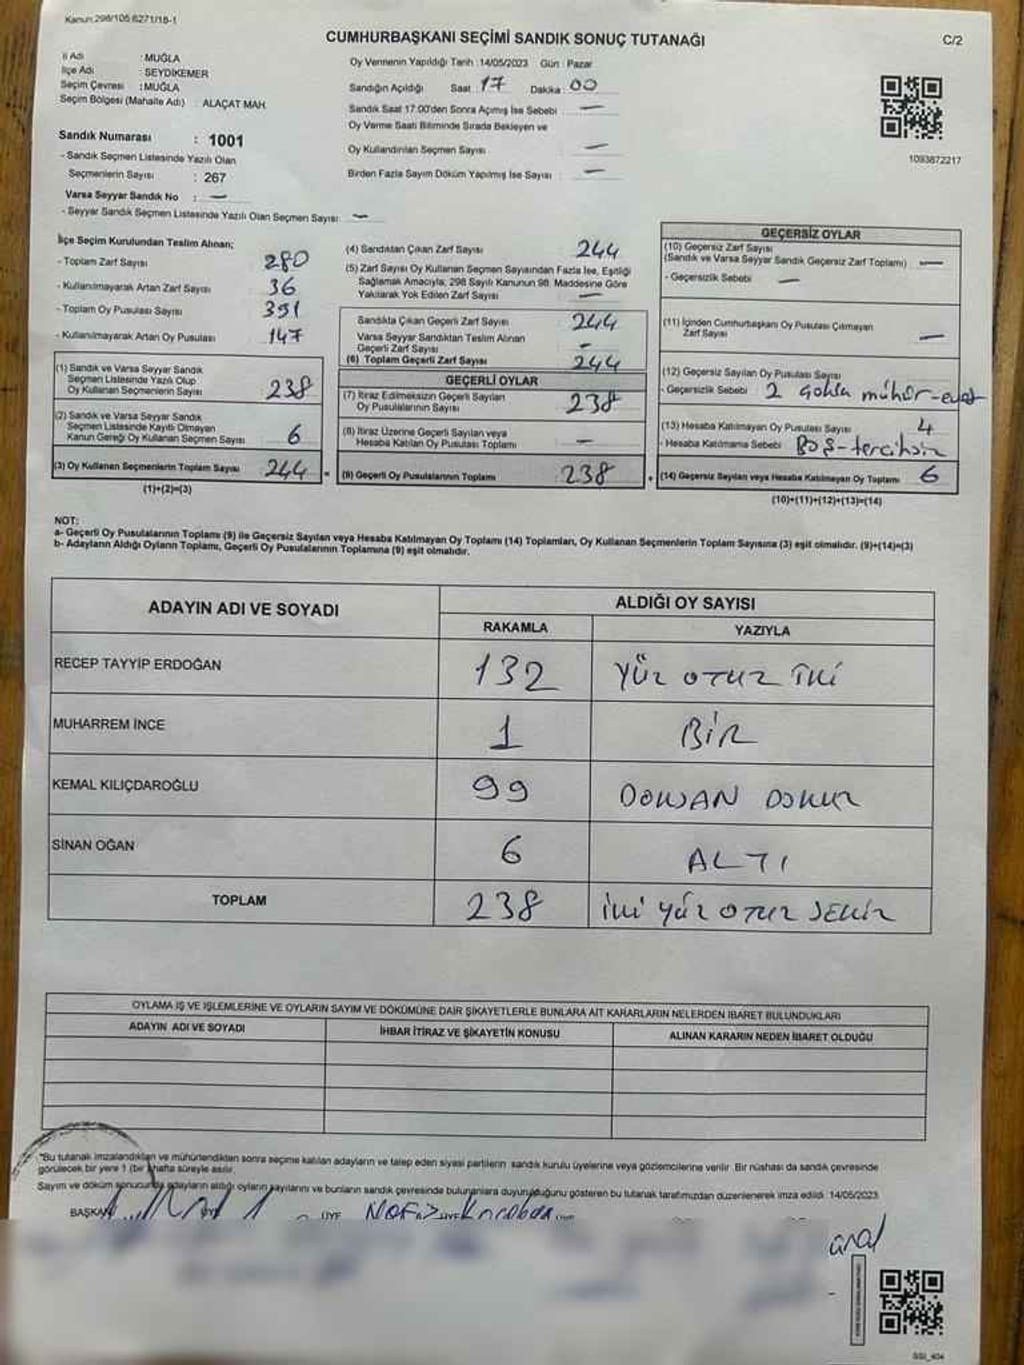 Kanun:298/105 6271/18-1
CUMHURBAŞKANI SEÇİMİ SANDIK SONUÇ TUTANAĞI
C/2
İl Adı : MUĞLA
İlçe Adı : SEYDİKEMER
Seçim Çevresi : MUĞLA
Seçim Bölgesi (Mahalle Adı) : ALAÇAT MAH.
Sandık Numarası : 1001
- Sandık Seçmen Listesinde Yazılı Olan
Seçmenlerin Sayısı : 267
Varsa Seyyar Sandık No : —
- Seyyar Sandık Seçmen Listesinde Yazılı Olan Seçmen Sayısı: —
Oy Vermenin Yapıldığı Tarih :14/05/2023 Gün : Pazar
Sandığın Açıldığı Saat : 17 Dakika : 00
Sandık Saat 17:00'den Sonra Açılmış İse Sebebi : —
Oy Verme Saati Bitiminde Sırada Bekleyen ve
Oy Kullandırılan Seçmen Sayısı : —
Birden Fazla Sayım Döküm Yapılmış İse Sayısı : —
1093872217
İlçe Seçim Kurulundan Teslim Alınan;
- Toplam Zarf Sayısı 280
- Kullanılmayarak Artan Zarf Sayısı 36
- Toplam Oy Pusulası Sayısı 391
- Kullanılmayarak Artan Oy Pusulası 147
(1) Sandık ve Varsa Seyyar Sandık
Seçmen Listesinde Yazılı Olup
Oy Kullanan Seçmenlerin Sayısı 238
(2) Sandık ve Varsa Seyyar Sandık
Seçmen Listesinde Kayıtlı Olmayan
Kanun Gereği Oy Kullanan Seçmen Sayısı 6
(3) Oy Kullanan Seçmenlerin Toplam Sayısı 244 =
(1)+(2)=(3)
(4) Sandıktan Çıkan Zarf Sayısı 244
(5) Zarf Sayısı Oy Kullanan Seçmen Sayısından Fazla İse, Eşitliği
Sağlamak Amacıyla; 298 Sayılı Kanunun 98. Maddesine Göre
Yakılarak Yok Edilen Zarf Sayısı —
Sandıkta Çıkan Geçerli Zarf Sayısı 244
Varsa Seyyar Sandıktan Teslim Alınan
Geçerli Zarf Sayısı -
(6) Toplam Geçerli Zarf Sayısı 244
GEÇERLİ OYLAR
(7) İtiraz Edilmeksizin Geçerli Sayılan
Oy Pusulalarının Sayısı 238
(8) İtiraz Üzerine Geçerli Sayılan veya
Hesaba Katılan Oy Pusulası Toplamı —
(9) Geçerli Oy Pusulalarının Toplamı 238 +
GEÇERSİZ OYLAR
(10) Geçersiz Zarf Sayısı
(Sandık ve Varsa Seyyar Sandık Geçersiz Zarf Toplamı) —
- Geçersizlik Sebebi —
(11) İçinden Cumhurbaşkanı Oy Pusulası Çıkmayan
Zarf Sayısı —
(12) Geçersiz Sayılan Oy Pusulası Sayısı
- Geçersizlik Sebebi 2 mühür-evet
(13) Hesaba Katılmayan Oy Pusulası Sayısı 4
- Hesaba Katılmama Sebebi BOŞ-tercihsiz
(14) Geçersiz Sayılan veya Hesaba Katılmayan Oy Toplamı 6
(10)+(11)+(12)+(13)=(14)
NOT:
a- Geçerli Oy Pusulalarının Toplamı (9) ile Geçersiz Sayılan veya Hesaba Katılmayan Oy Toplamı (14) Toplamları, Oy Kullanan Seçmenlerin Toplam Sayısına (3) eşit olmalıdır. (9)+(14)=(3)
b- Adayların Aldığı Oyların Toplamı, Geçerli Oy Pusulalarının Toplamına (9) eşit olmalıdır.
ADAYIN ADI VE SOYADI
ALDIĞI OY SAYISI
RAKAMLA YAZIYLA
RECEP TAYYİP ERDOĞAN 132 YÜZ OTUZ İKİ
MUHARREM İNCE 1 BİR
KEMAL KILIÇDAROĞLU 99 DOKSAN DOKUZ
SİNAN OĞAN 6 ALTI
TOPLAM 238 İKİ YÜZ OTUZ SEKİZ
OYLAMA İŞ VE İŞLEMLERİNE VE OYLARIN SAYIM VE DÖKÜMÜNE DAİR ŞİKAYETLERLE BUNLARA AİT KARARLARIN NELERDEN İBARET BULUNDUKLARI
ADAYIN ADI VE SOYADI İHBAR İTİRAZ VE ŞİKAYETİN KONUSU ALINAN KARARIN NEDEN İBARET OLDUĞU
"Bu tutanak imzalandıktan ve mühürlendikten sonra seçime katılan adayların ve talep eden siyasi partilerin sandık kurulu üyelerine veya gözlemcilerine verilir. Bir nüshası da sandık çevresinde
görülecek bir yere 1 (bir) hafta süreyle asılır.
Sayım ve döküm sonucunda adayların aldığı oyların sayılarını ve bunların sandık çevresinde bulunanlara duyurulduğunu gösteren bu tutanak tarafımızdan düzenlenerek imza edildi. 14/05/2023
BAŞKAN ÜYE ÜYE